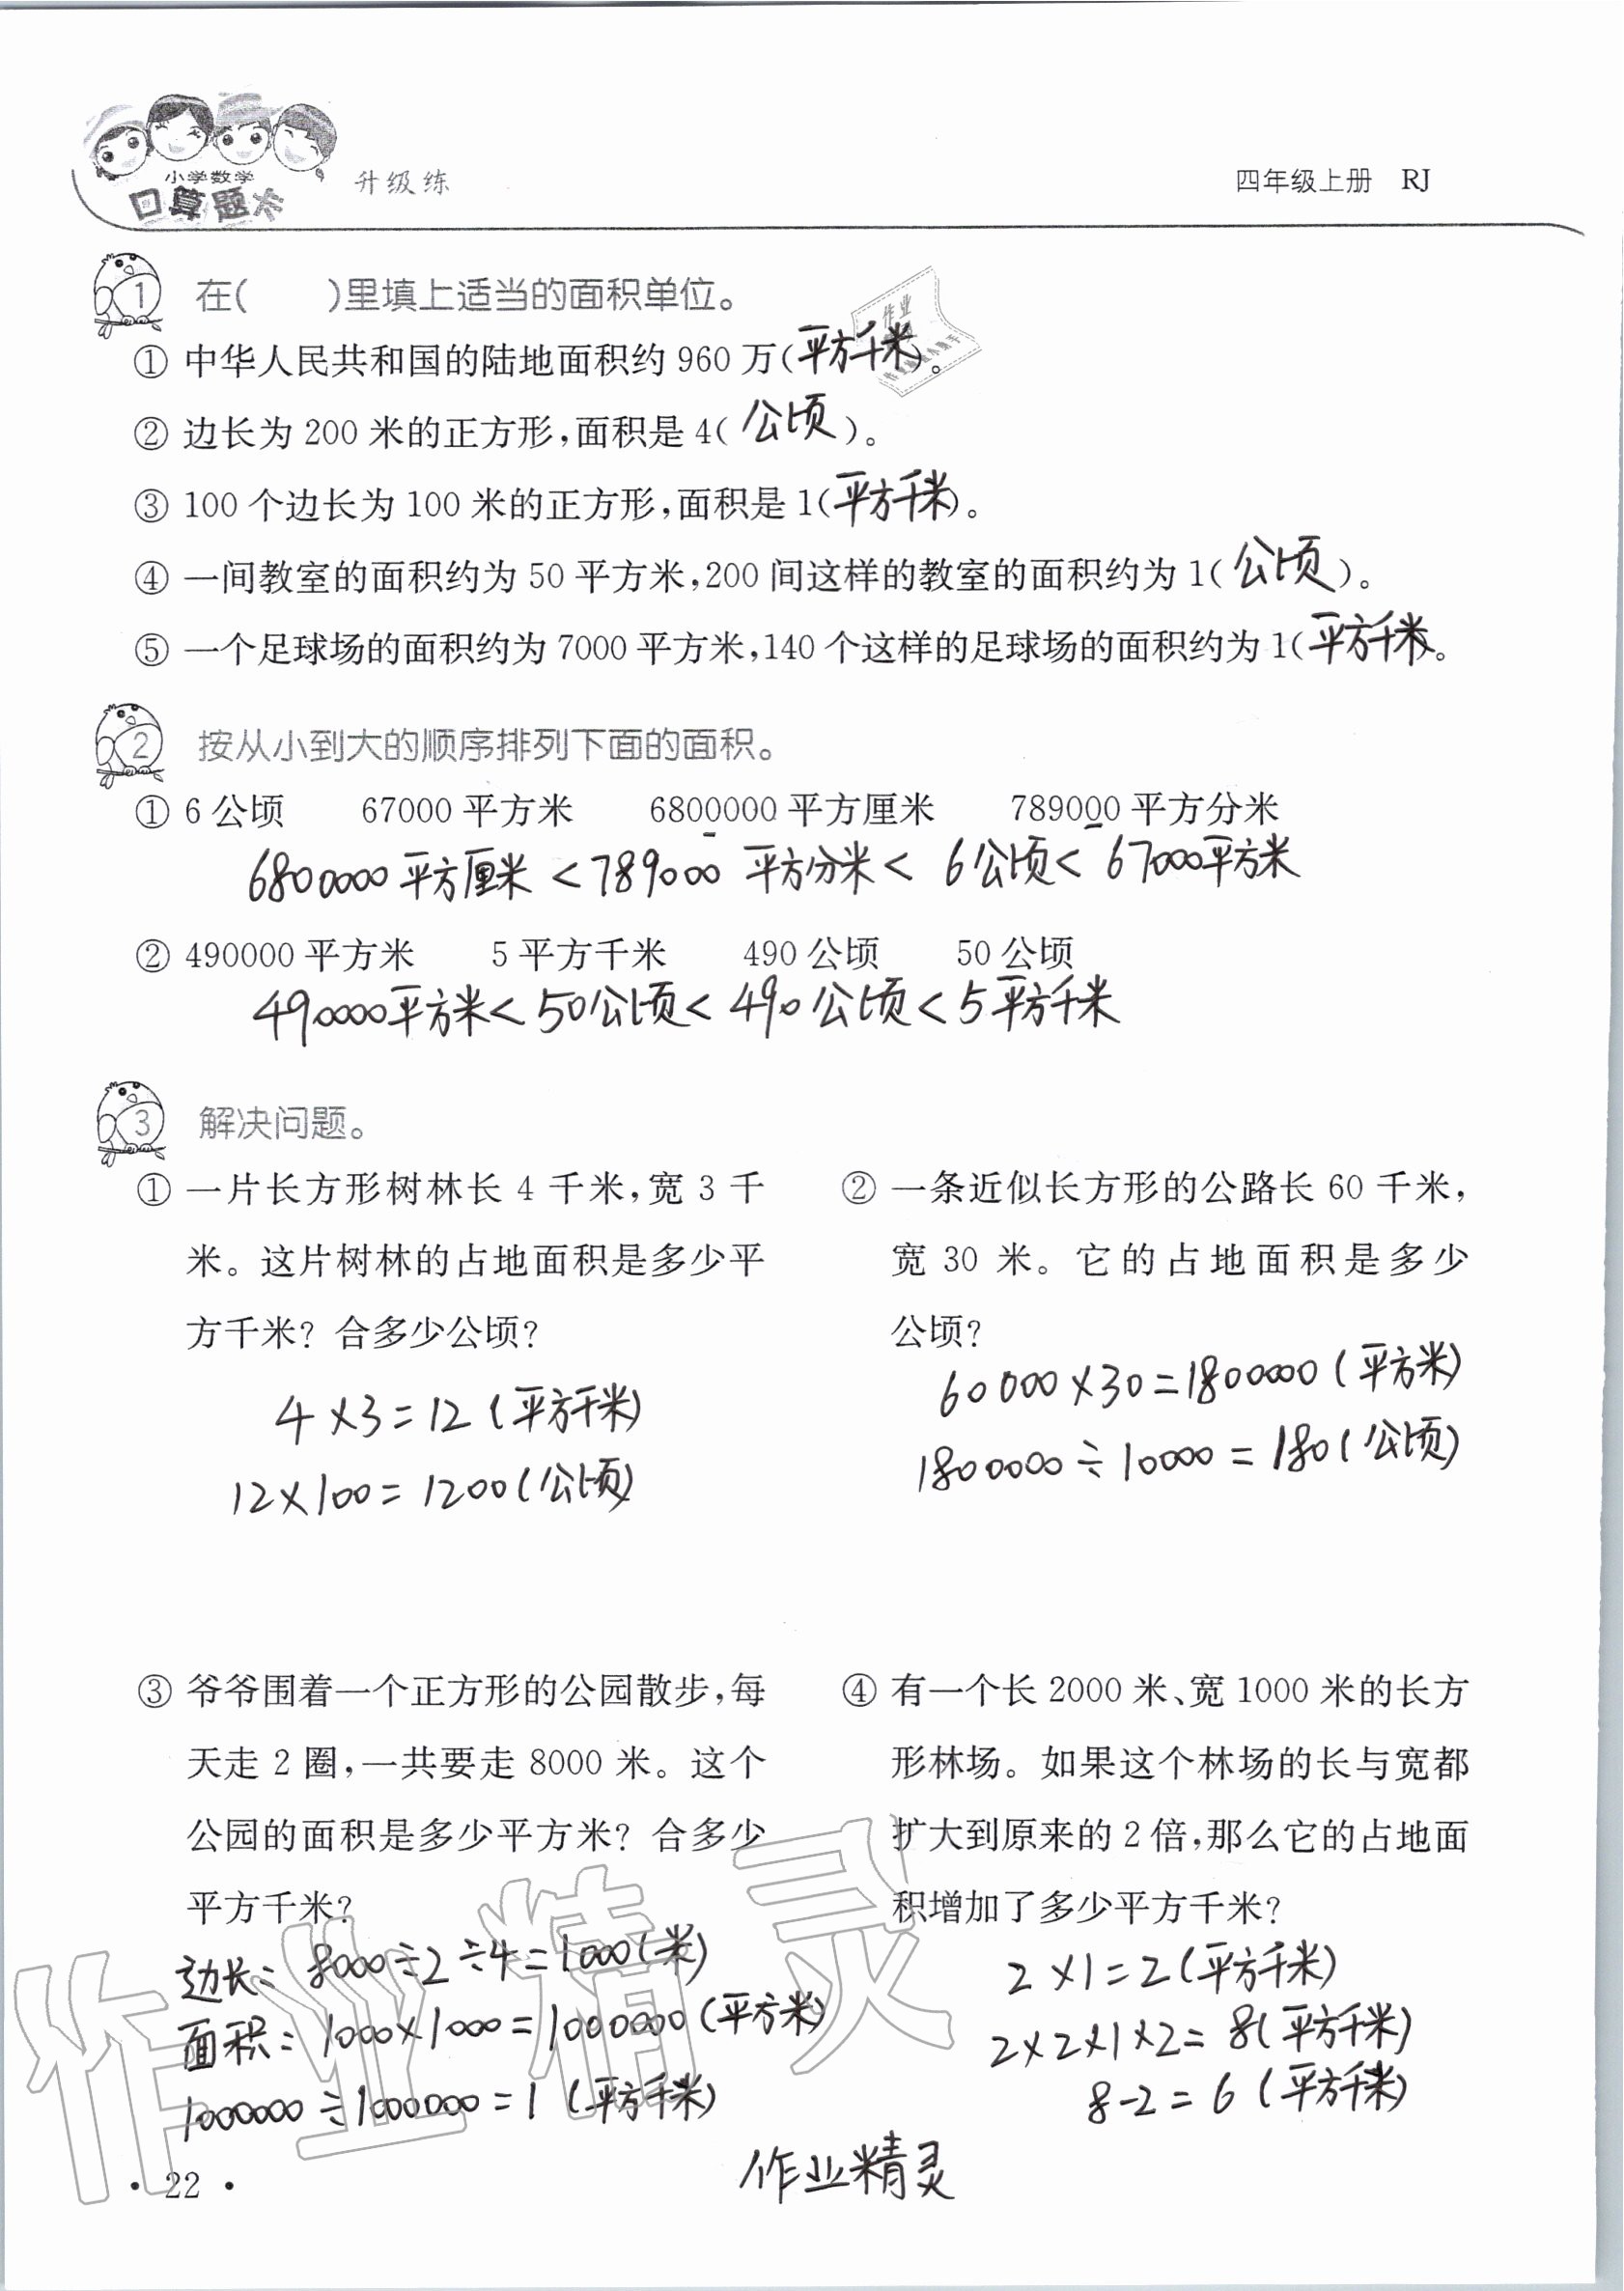 小学数学
口算题卡
升级练
四年级上册 RJ
1 在(  )里填上适当的面积单位。
① 中华人民共和国的陆地面积约 960 万(平方千米)。
② 边长为 200 米的正方形,面积是 4(公顷)。
③ 100 个边长为 100 米的正方形,面积是 1(平方千米)。
④ 一间教室的面积约为 50 平方米,200 间这样的教室的面积约为 1(公顷)。
⑤ 一个足球场的面积约为 7000 平方米,140 个这样的足球场的面积约为 1(平方千米)。
2 按从小到大的顺序排列下面的面积。
① 6 公顷 67000 平方米 6800000 平方厘米 789000 平方分米
6800000平方厘米<789000平方分米<6公顷<67000平方米
② 490000 平方米 5 平方千米 490 公顷 50 公顷
490000平方米<50公顷<490公顷<5平方千米
3 解决问题。
① 一片长方形树林长 4 千米,宽 3 千
米。这片树林的占地面积是多少平
方千米? 合多少公顷?
4×3=12(平方千米)
12×100=1200(公顷)
② 一条近似长方形的公路长 60 千米,
宽 30 米。它的占地面积是多少
公顷?
60000×30=1800000(平方米)
1800000÷10000=180(公顷)
③ 爷爷围着一个正方形的公园散步,每
天走 2 圈,一共要走 8000 米。这个
公园的面积是多少平方米? 合多少
平方千米?
边长:8000÷2÷4=1000(米)
面积:1000×1000=1000000(平方米)
1000000÷1000000=1(平方千米)
④ 有一个长 2000 米、宽 1000 米的长方
形林场。如果这个林场的长与宽都
扩大到原来的 2 倍,那么它的占地面
积增加了多少平方千米?
2×1=2(平方千米)
2×2×1×2=8(平方千米)
8-2=6(平方千米)
作业精灵
· 22 ·
作业精灵